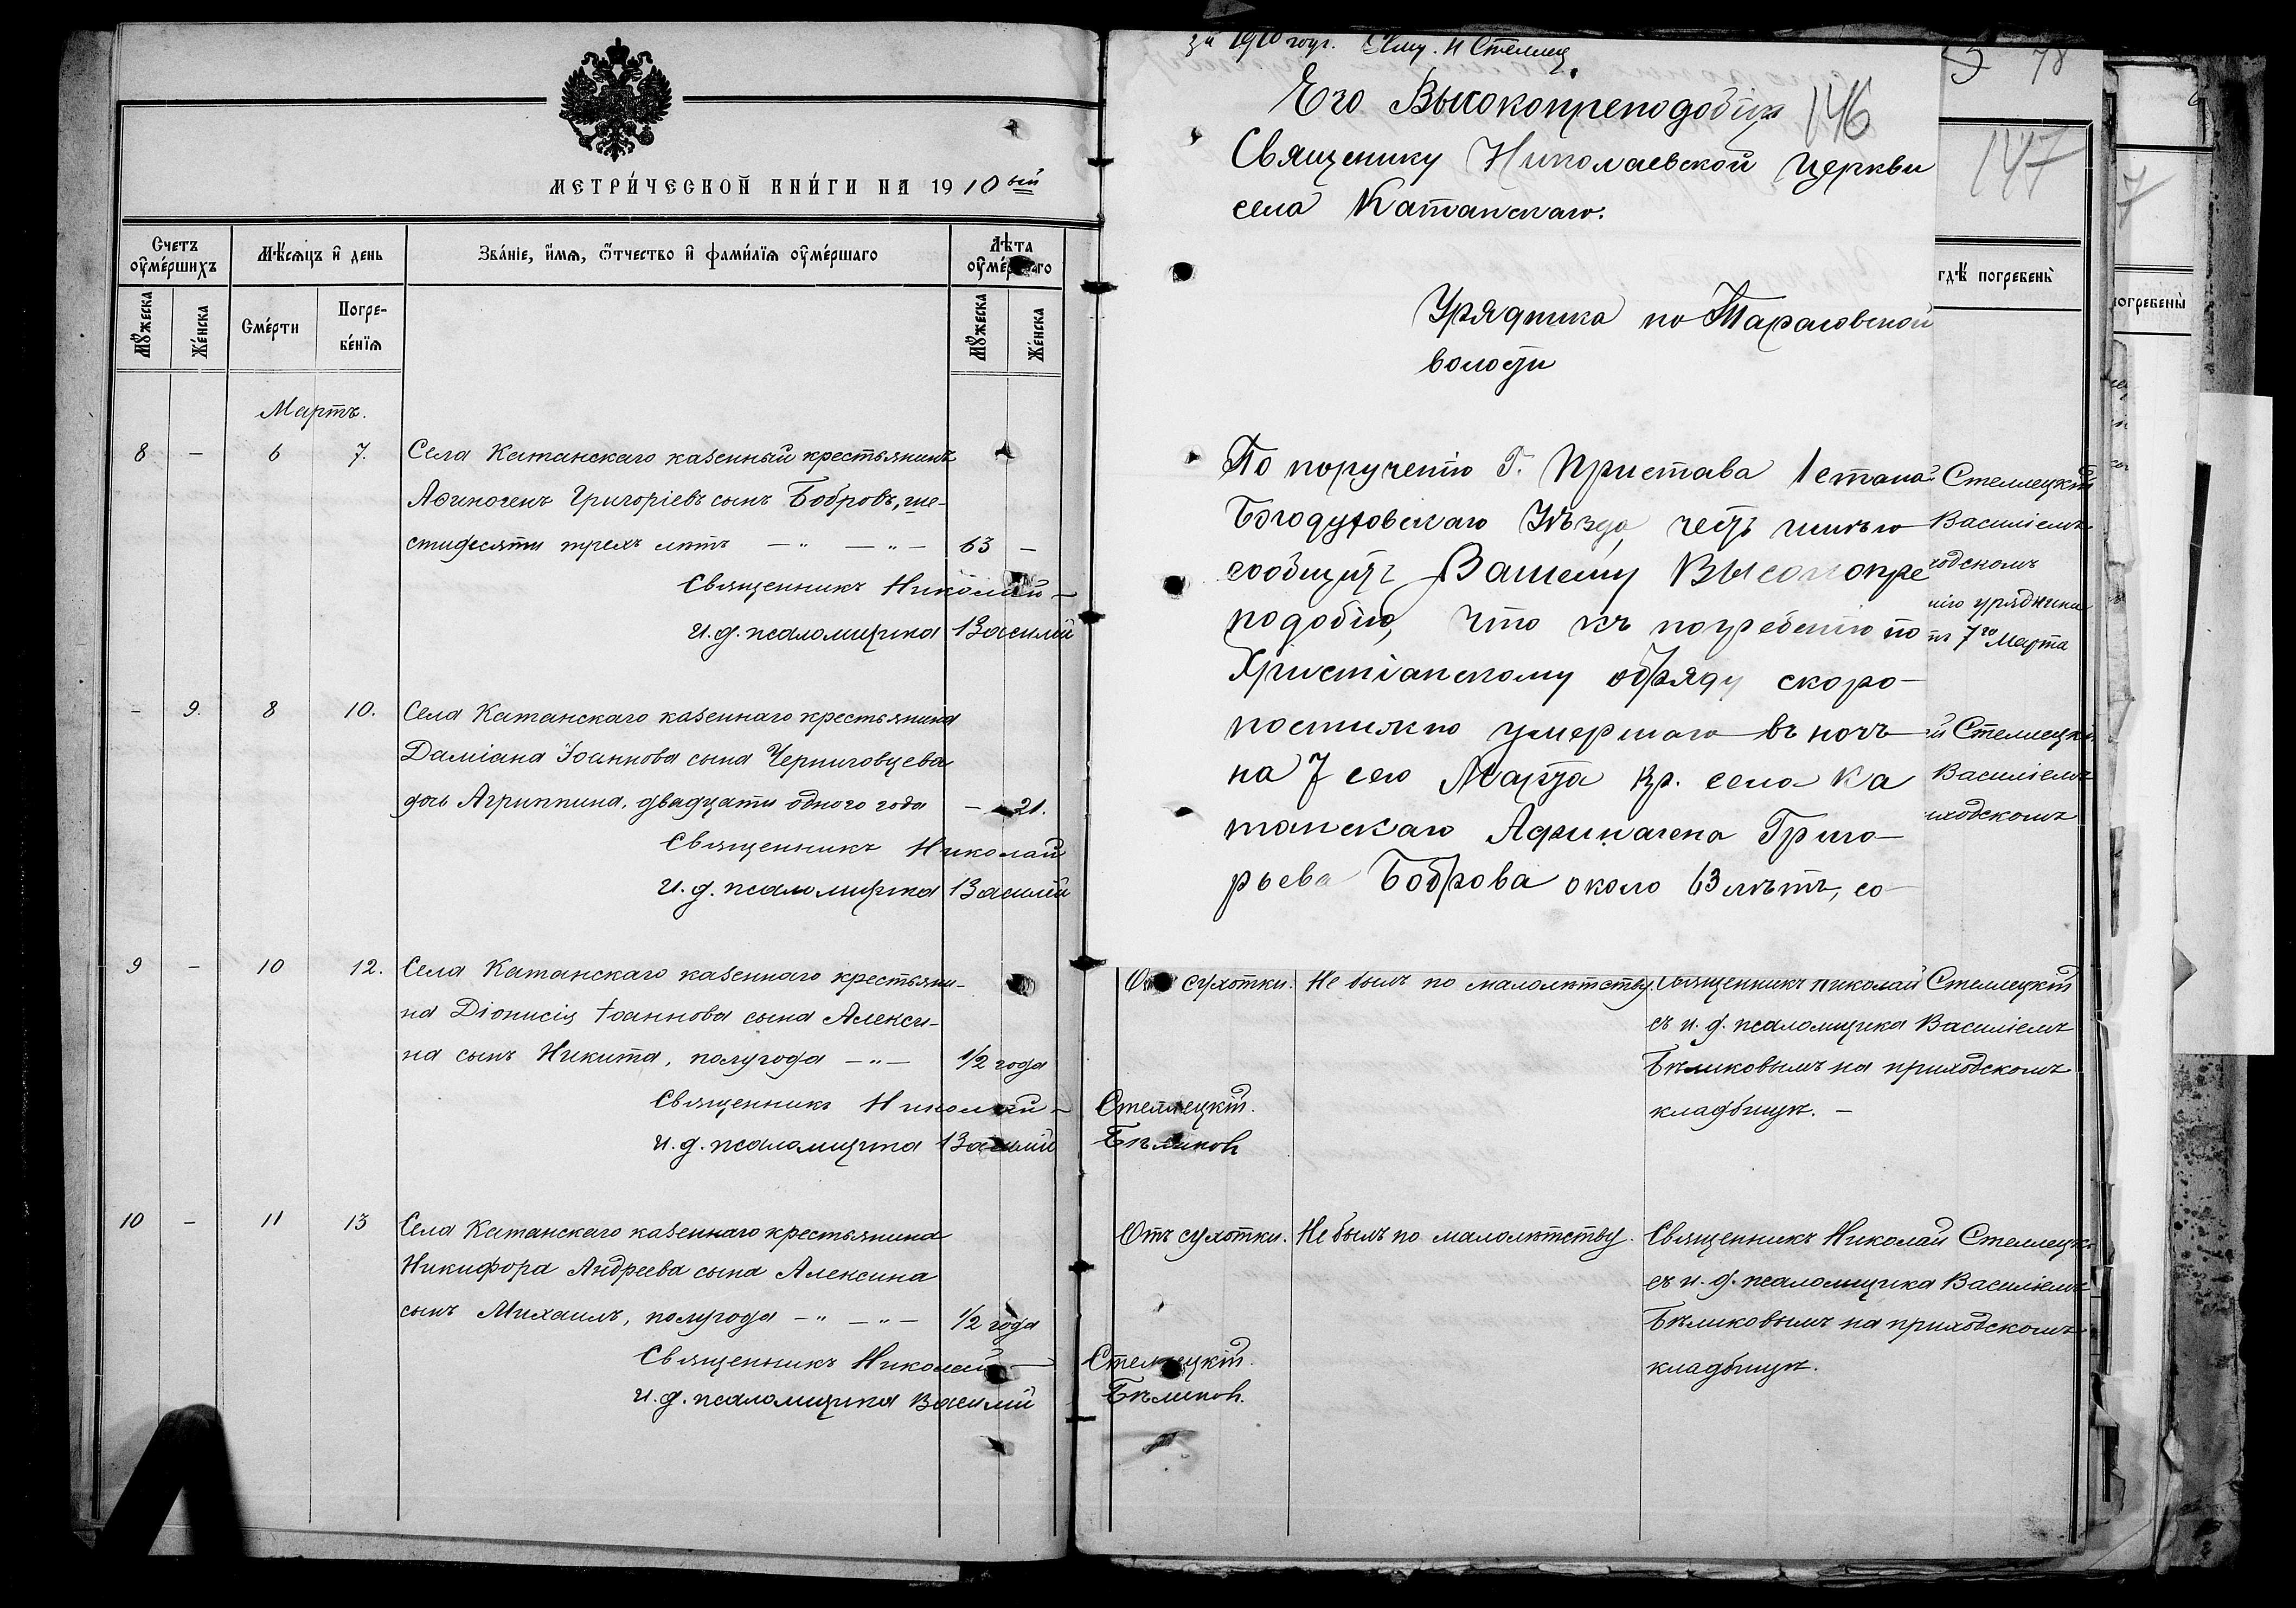 МЕТРИЧЕСКОЙ КНИГИ НА 1910ый
Счетъ оумершихъ
Мѣсяцъ и день
Званіе, имя, отчество и фамилія оумершаго
Лѣта оумершаго
Мужеска
Женска
Смерти
Погре-
бенія
Мужеска
Женска
Мартъ.
8 — 6 7. Села Катанскаго казенный крестьянинъ
Аѳиногенъ Григоріевъ сынъ Бобровъ, ше-
стидесяти трехъ лѣтъ — " — " — 63 —
Священникъ Николай —
И. д. псаломщика Василій
— 9. 8 10. Села Катанскаго казеннаго крестьянина
Даміана Іоаннова сына Черниговцева
дочь Агриппина, двадцати одного года — 21.
Священникъ Николай
И. д. псаломщика Василій
9 — 10 12. Села Катанскаго казеннаго крестьяни-
на Діонисія Іоаннова сына Алекси-
на сынъ Никита, полугода — " — 1/2 года
Священникъ Николай —
И. д. псаломщика Василій
10 — 11 13 Села Катанскаго казеннаго крестьянина
Никифора Андреева сына Алексина
сынъ Михаилъ, полугода — " — " — 1/2 года
Священникъ Николай —
И. д. псаломщика Василій
за 1910 годъ. Свящ. Н Стеллец
78
Его Высокопреподобію 146
147
Священику Николаевской церкви
села Катанскаго.
гдѣ погребены
погребены
Урядника по Тарасовской
волости
По порученію Г. Пристава 1 стана
Богодуховскаго Уѣзда, честь имѣю
сообщить Вашему Высокопре
подобію, что къ погребенію по
Христіанскому обряду скоро-
постижно умершаго въ ночь
на 7 сего Марта кр. села Ка
танскаго Афиногена Григо-
рьева Боброва около 63 лѣтъ, со-
Стеллецкій
Василіемъ
ходскомъ
нію урядника
7го Марта
й Стеллецкі
Василіемъ
иходскомъ
Отъ сухотки. Не былъ по малолѣтству. Священникъ Николай Стеллецкій
съ и. д. псаломщика Василіемъ
Бѣликовымъ на приходскомъ
Стеллецкій. кладбищѣ. —
Бѣликовъ
Отъ сухотки. Не былъ по малолѣтству. Священникъ Николай Стеллецкі
съ и. д. псаломщика Василіемъ
Бѣликовымъ на приходскомъ
Стеллецкій. кладбищѣ.
Бѣликовъ.